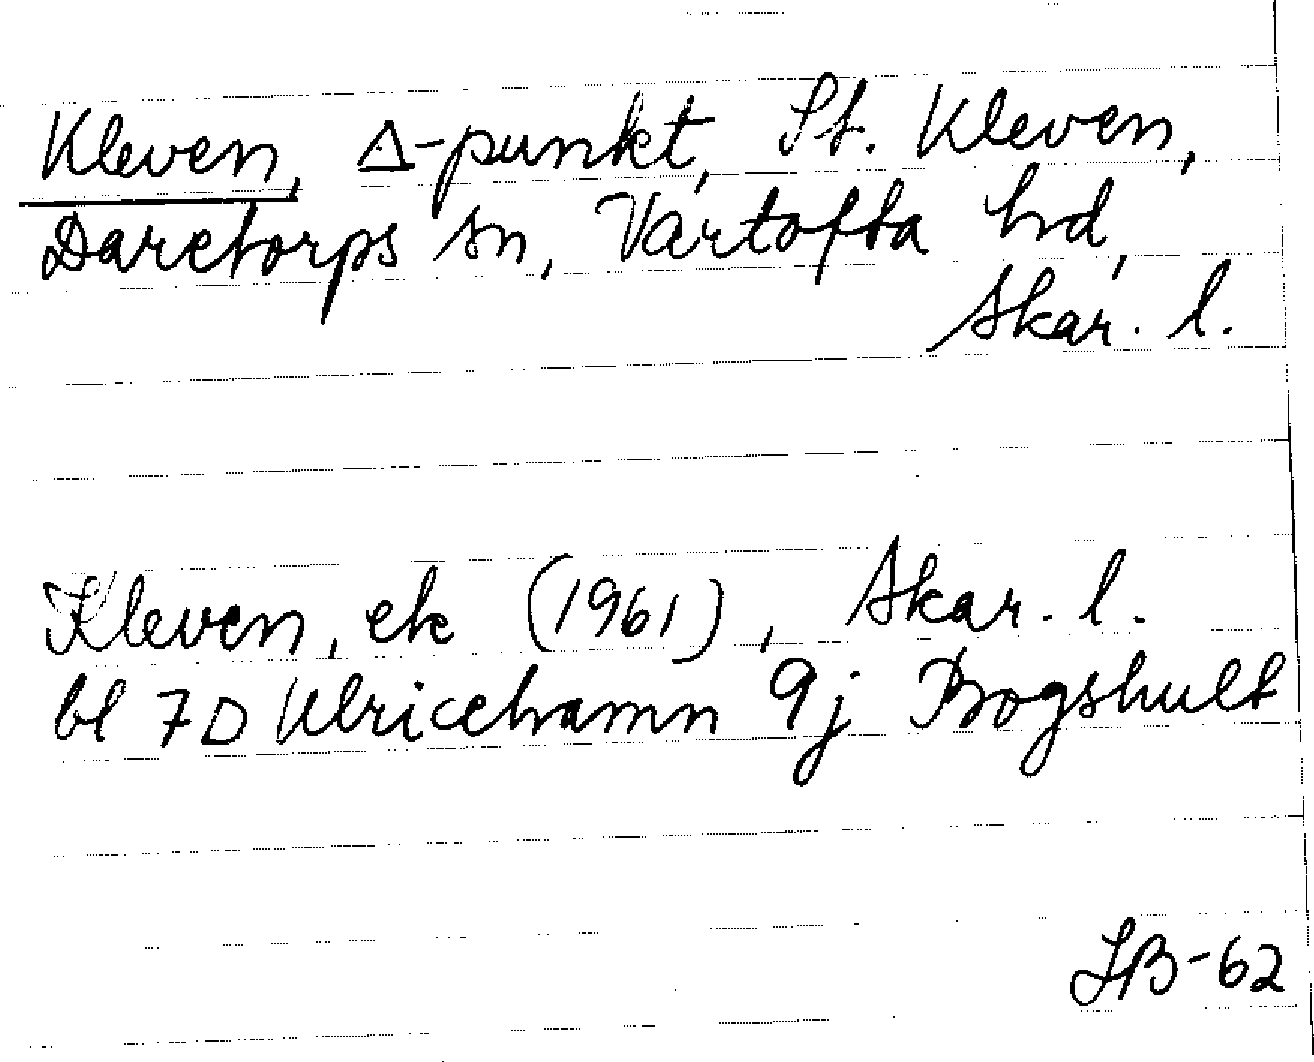 Kleven, Δ-punkt, St. Kleven,
Daretorps sn, Vartofta hd,
Skar. l.
Kleven, ek (1961), Skar. l.
bl 7D Ulricehamn 9j Brogshult